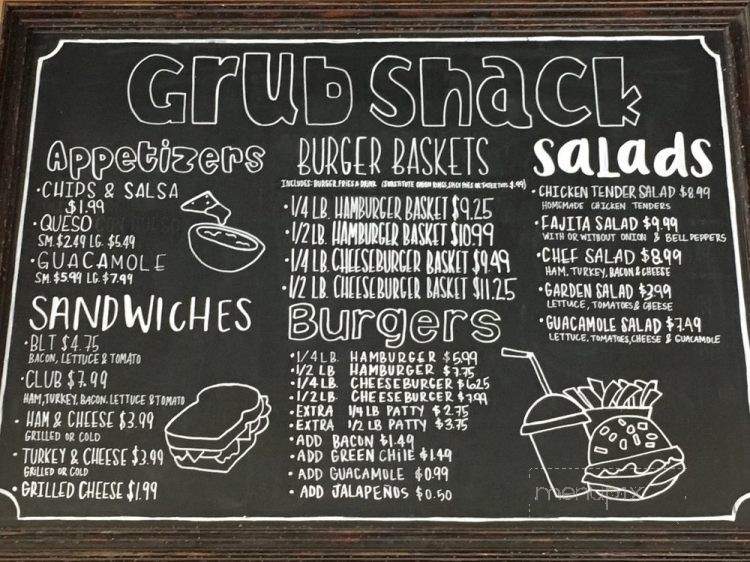 Grub Shack
Appetizers
• CHIPS & SALSA
$1.99
• QUESO
SM. $2.49 LG. $5.49
• GUACAMOLE
SM. $5.99 LG. $7.99
SANDWICHES
• BLT $4.75
BACON, LETTUCE & TOMATO
• CLUB $7.99
HAM, TURKEY, BACON, LETTUCE & TOMATO
• HAM & CHEESE $3.99
GRILLED OR COLD
• TURKEY & CHEESE $3.99
GRILLED OR COLD
• GRILLED CHEESE $1.99
BURGER BASKETS
INCLUDES: BURGER, FRIES & DRINK (SUBSTITUTE ONION RINGS, SPICY FRIES OR TATER TOTS $.99)
• 1/4 LB. HAMBURGER BASKET $9.25
• 1/2 LB. HAMBURGER BASKET $10.99
• 1/4 LB CHEESEBURGER BASKET $9.49
• 1/2 LB. CHEESEBURGER BASKET $11.25
Burgers
• 1/4 LB. HAMBURGER $5.99
• 1/2 LB HAMBURGER $7.75
• 1/4 LB. CHEESEBURGER $6.25
• 1/2 LB. CHEESEBURGER $7.99
• EXTRA 1/4 LB PATTY $2.75
• EXTRA 1/2 LB PATTY $3.75
• ADD BACON $1.49
• ADD GREEN CHILE $1.49
• ADD GUACAMOLE $0.99
• ADD JALAPEÑOS $0.50
salads
• CHICKEN TENDER SALAD $8.99
HOMEMADE CHICKEN TENDERS
• FAJITA SALAD $9.99
WITH OR WITHOUT ONION & BELL PEPPERS
• CHEF SALAD $8.99
HAM, TURKEY, BACON & CHEESE
• GARDEN SALAD $3.99
LETTUCE, TOMATOES & CHEESE
• GUACAMOLE SALAD $7.49
LETTUCE, TOMATOES, CHEESE & GUACAMOLE
menupix